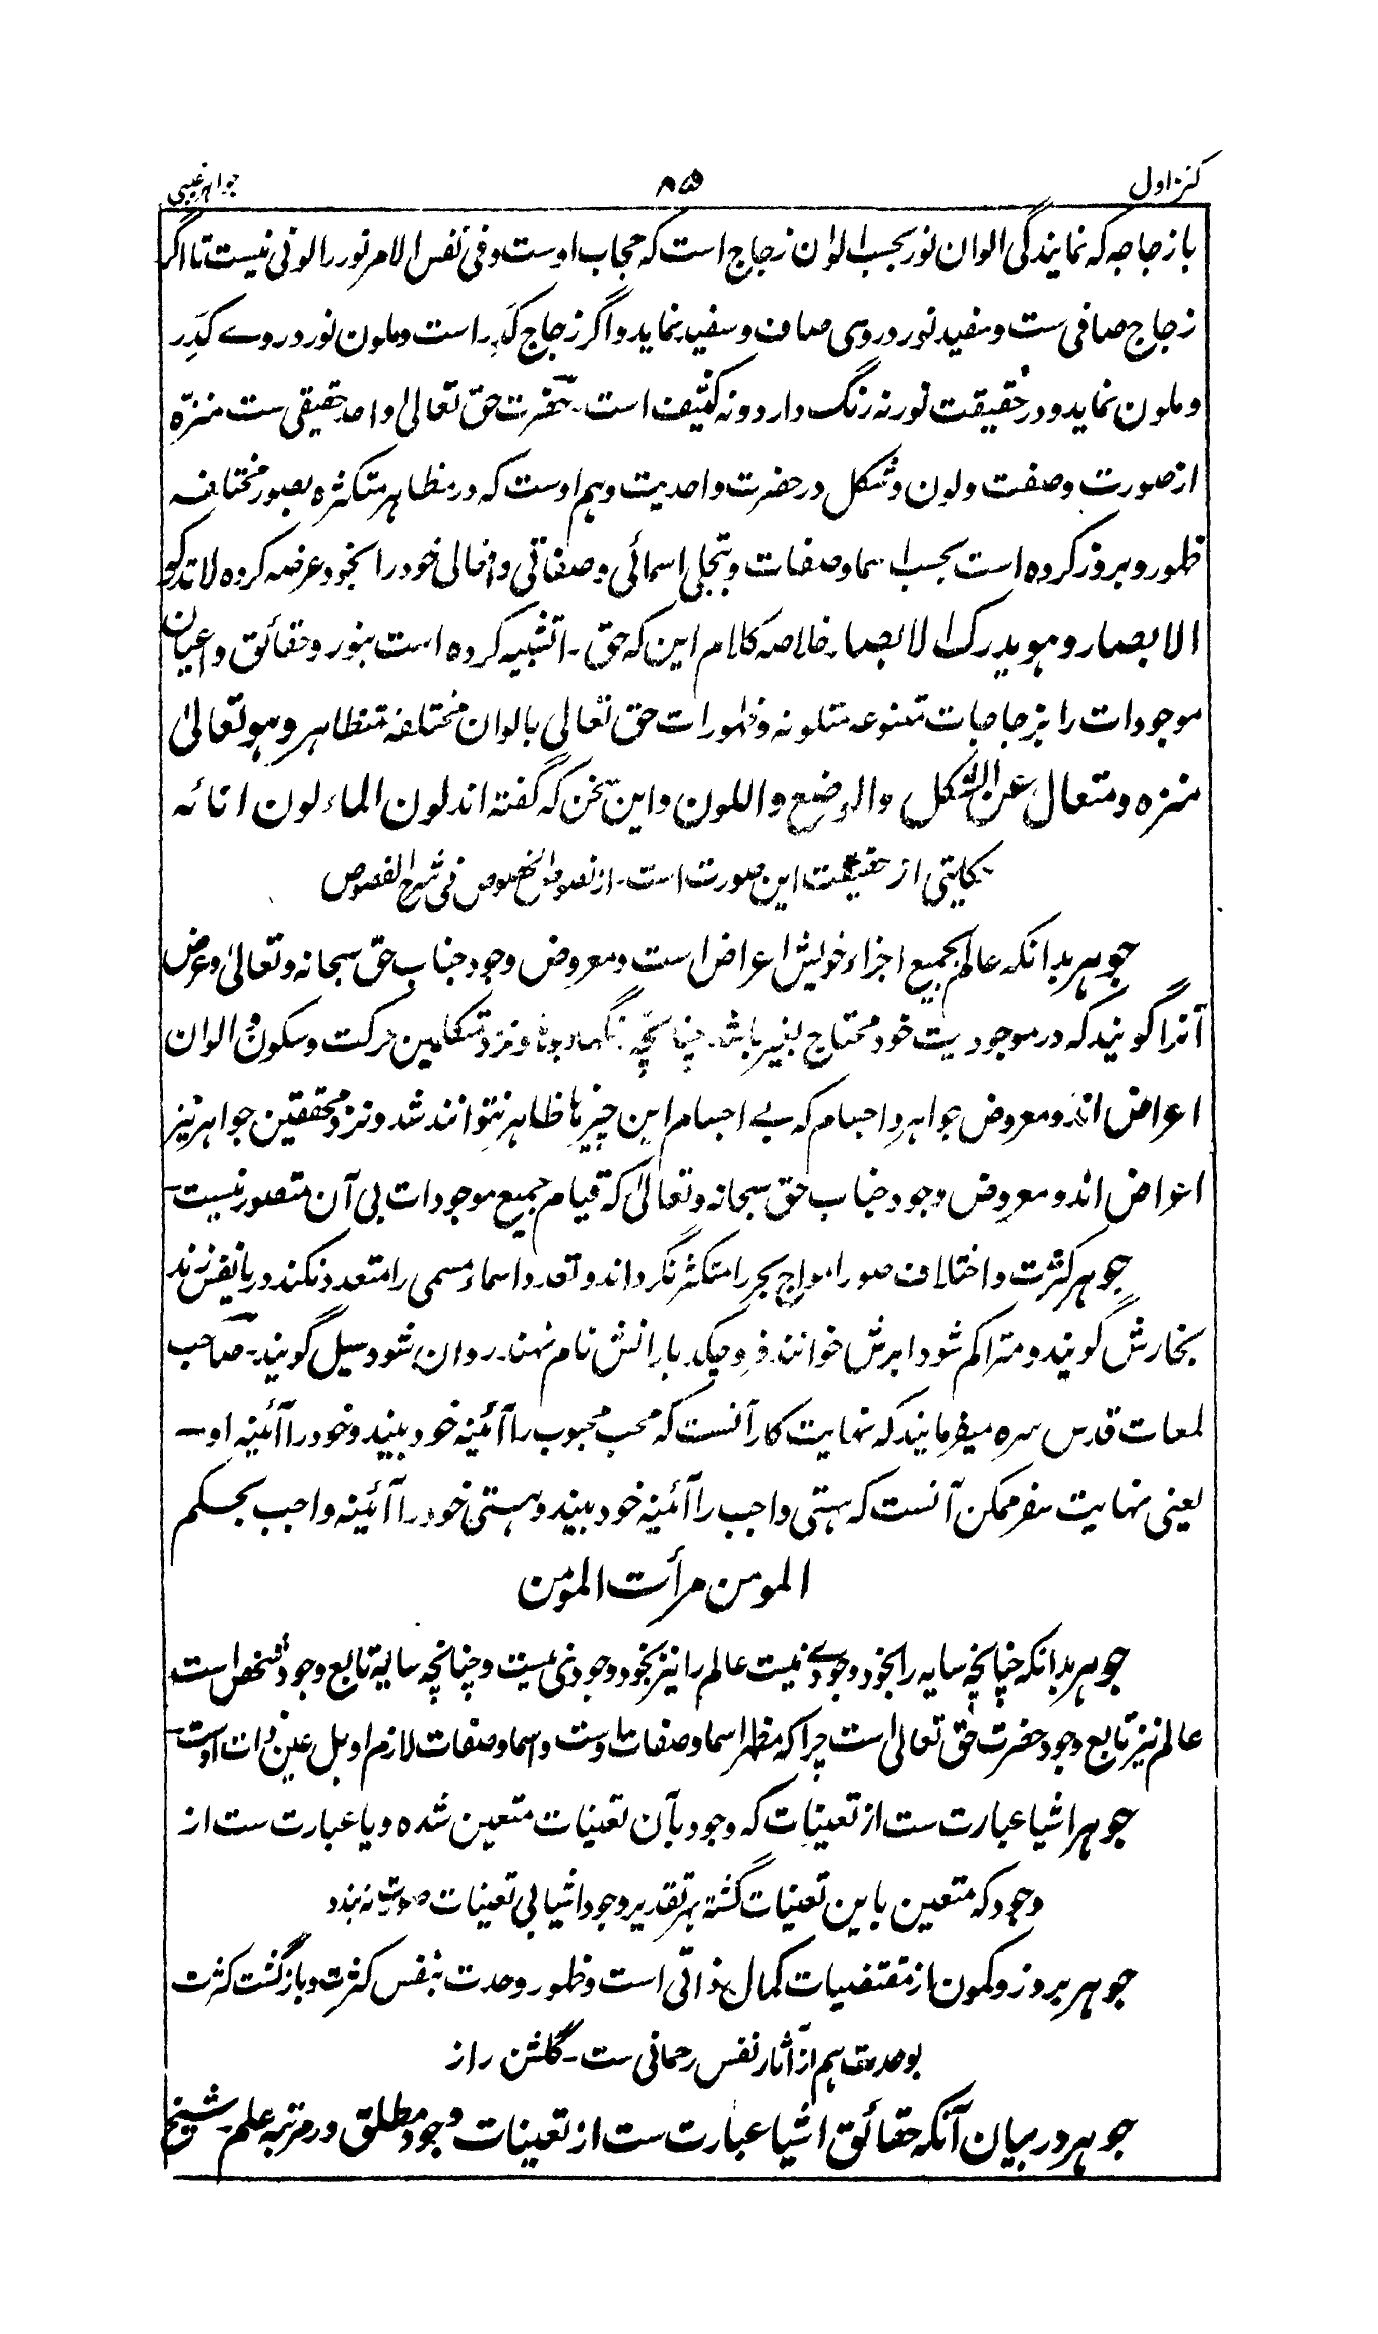 کنز اول ۸۵ جواهر غیبی
با زجاجه که نمایندگی الوان نور بحسب الوان زجاج است که حجاب اوست و فی نفس الامر نور را لونی نیست تا اگر
زجاج صافی ست و سفید نور در وی صاف و سفید نماید و اگر زجاج کدر است و ملون نور در وے کدر
و ملون نماید و در حقیقت نور نه رنگ دارد و نه کثیف است۔ حضرت حق تعالی واحد حقیقی ست منزّه
از صورت و صفت و لون و شکل در حضرت واحدیت و هم اوست که در مظاهر متکثره بصور مختلفه
ظهور و بروز کرده است بحسب اسما و صفات و بتجلی اسمائی و صفاتی و افعالی خود را بخود عرضه کرده لا تدرکه
الابصار و هو یدرک الابصار خلاصه کلام این که حق را تشبیه کرده است بنور و حقائق و اعیان
موجودات را بزجاجات متنوعه متلونه و ظهورات حق تعالی بالوان مختلفه متظاهر و هو تعالیٰ
منزه و متعال عن الشکل والوضع واللون و این سخن که گفته اند لون الماء لون انائه
حکایتی از حقیقت این صورت است۔ از نصوص الخصوص فی شرح الفصوص
جوهر بدانکه عالم بجمیع اجزاء خویش اعراض است و معروض وجود جناب حق سبحانه و تعالیٰ و عرض
آنرا گویند که در موجودیت خود محتاج بغیر باشد چنانچه رنگها و بوها و نزد متکلمین حرکت و سکون و الوان
اعراض اند و معروض جواهر و اجسام که بے اجسام این چیزها ظاهر نتوانند شد و نزد محققین جواهر نیز
اعراض اند و معروض وجود جناب حق سبحانه و تعالیٰ که قیام جمیع موجودات بی آن متصور نیست
جوهر کثرت و اختلاف صور امواج بحر را متکثر نگرداند و تعدد اسماء مسمی را متعدد نکند دریا نفس زند
بخارش گویند و متراکم شود ابرش خوانند فرو چکد بارانش نام نهند روان شود سیل گویند۔ صاحب
لمعات قدس سره میفرمایند که نهایت کار آنست که محب محبوب را آئینه خود بیند و خود را آئینه او
یعنی نهایت سفر ممکن آنست که هستی واجب را آئینه خود بیند و هستی خود را آئینه واجب بحکم
المومن مرأت المومن
جوهر بدانکه چنانچه سایه را بخود وجودے نیست عالم را نیز بخود وجودی نیست و چنانچه سایه تابع وجود شخص است
عالم نیز تابع وجود حضرت حق تعالی است چرا که مظهر اسما و صفات اوست و اسما و صفات لازم او بل عین ذات اوست
جوهر اشیا عبارت ست از تعینات که وجود بآن تعینات متعین شده و یا عبارت ست از
وجود که متعین باین تعینات گشته بهر تقدیر وجود اشیا بی تعینات صورت نه بندد
جوهر بروز و کمون از مقتضیات کمال ذاتی است و ظهور وحدت بنفس کثرت و بازگشت کثرت
بوحدت هم از آثار نفس رحمانی ست۔ گلشن راز
جوهر در بیان آنکه حقائق اشیا عبارت ست از تعینات وجود مطلق در مرتبه علم۔ شیخ